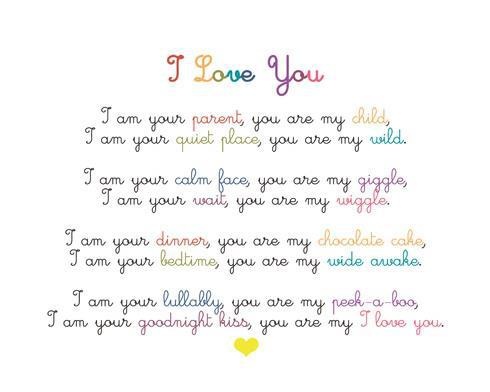 I Love You
I am your parent, you are my child,
I am your quiet place, you are my wild.
I am your calm face, you are my giggle,
I am your wait, you are my wiggle.
I am your dinner, you are my chocolate cake,
I am your bedtime, you are my wide awake.
I am your lullaby, you are my peek-a-boo,
I am your goodnight kiss, you are my I love you.